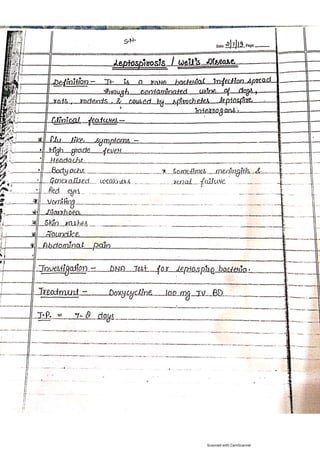 SN-
Date 3/1/19 Page
Leptospirosis / Weil's Disease
Definition - It is a rare bacterial infection spread
through contaminated urine of dogs,
rats, rodents, & caused by spirochetes leptospira
interrogans.
Clinical features -
* Flu like symptoms -
• High grade fever
• Headache
• Bodyache * Sometimes meningitis &
• Generalized weakness renal failure
• Red eyes
* Vomiting
* Diarrhoea
* Skin rashes
* Jaundice
* Abdominal pain
Investigation - DNA Test for leptospira bacteria.
Treatment - Doxycycline 100 mg IV BD
I.P. = 7-8 days
Scanned with CamScanner